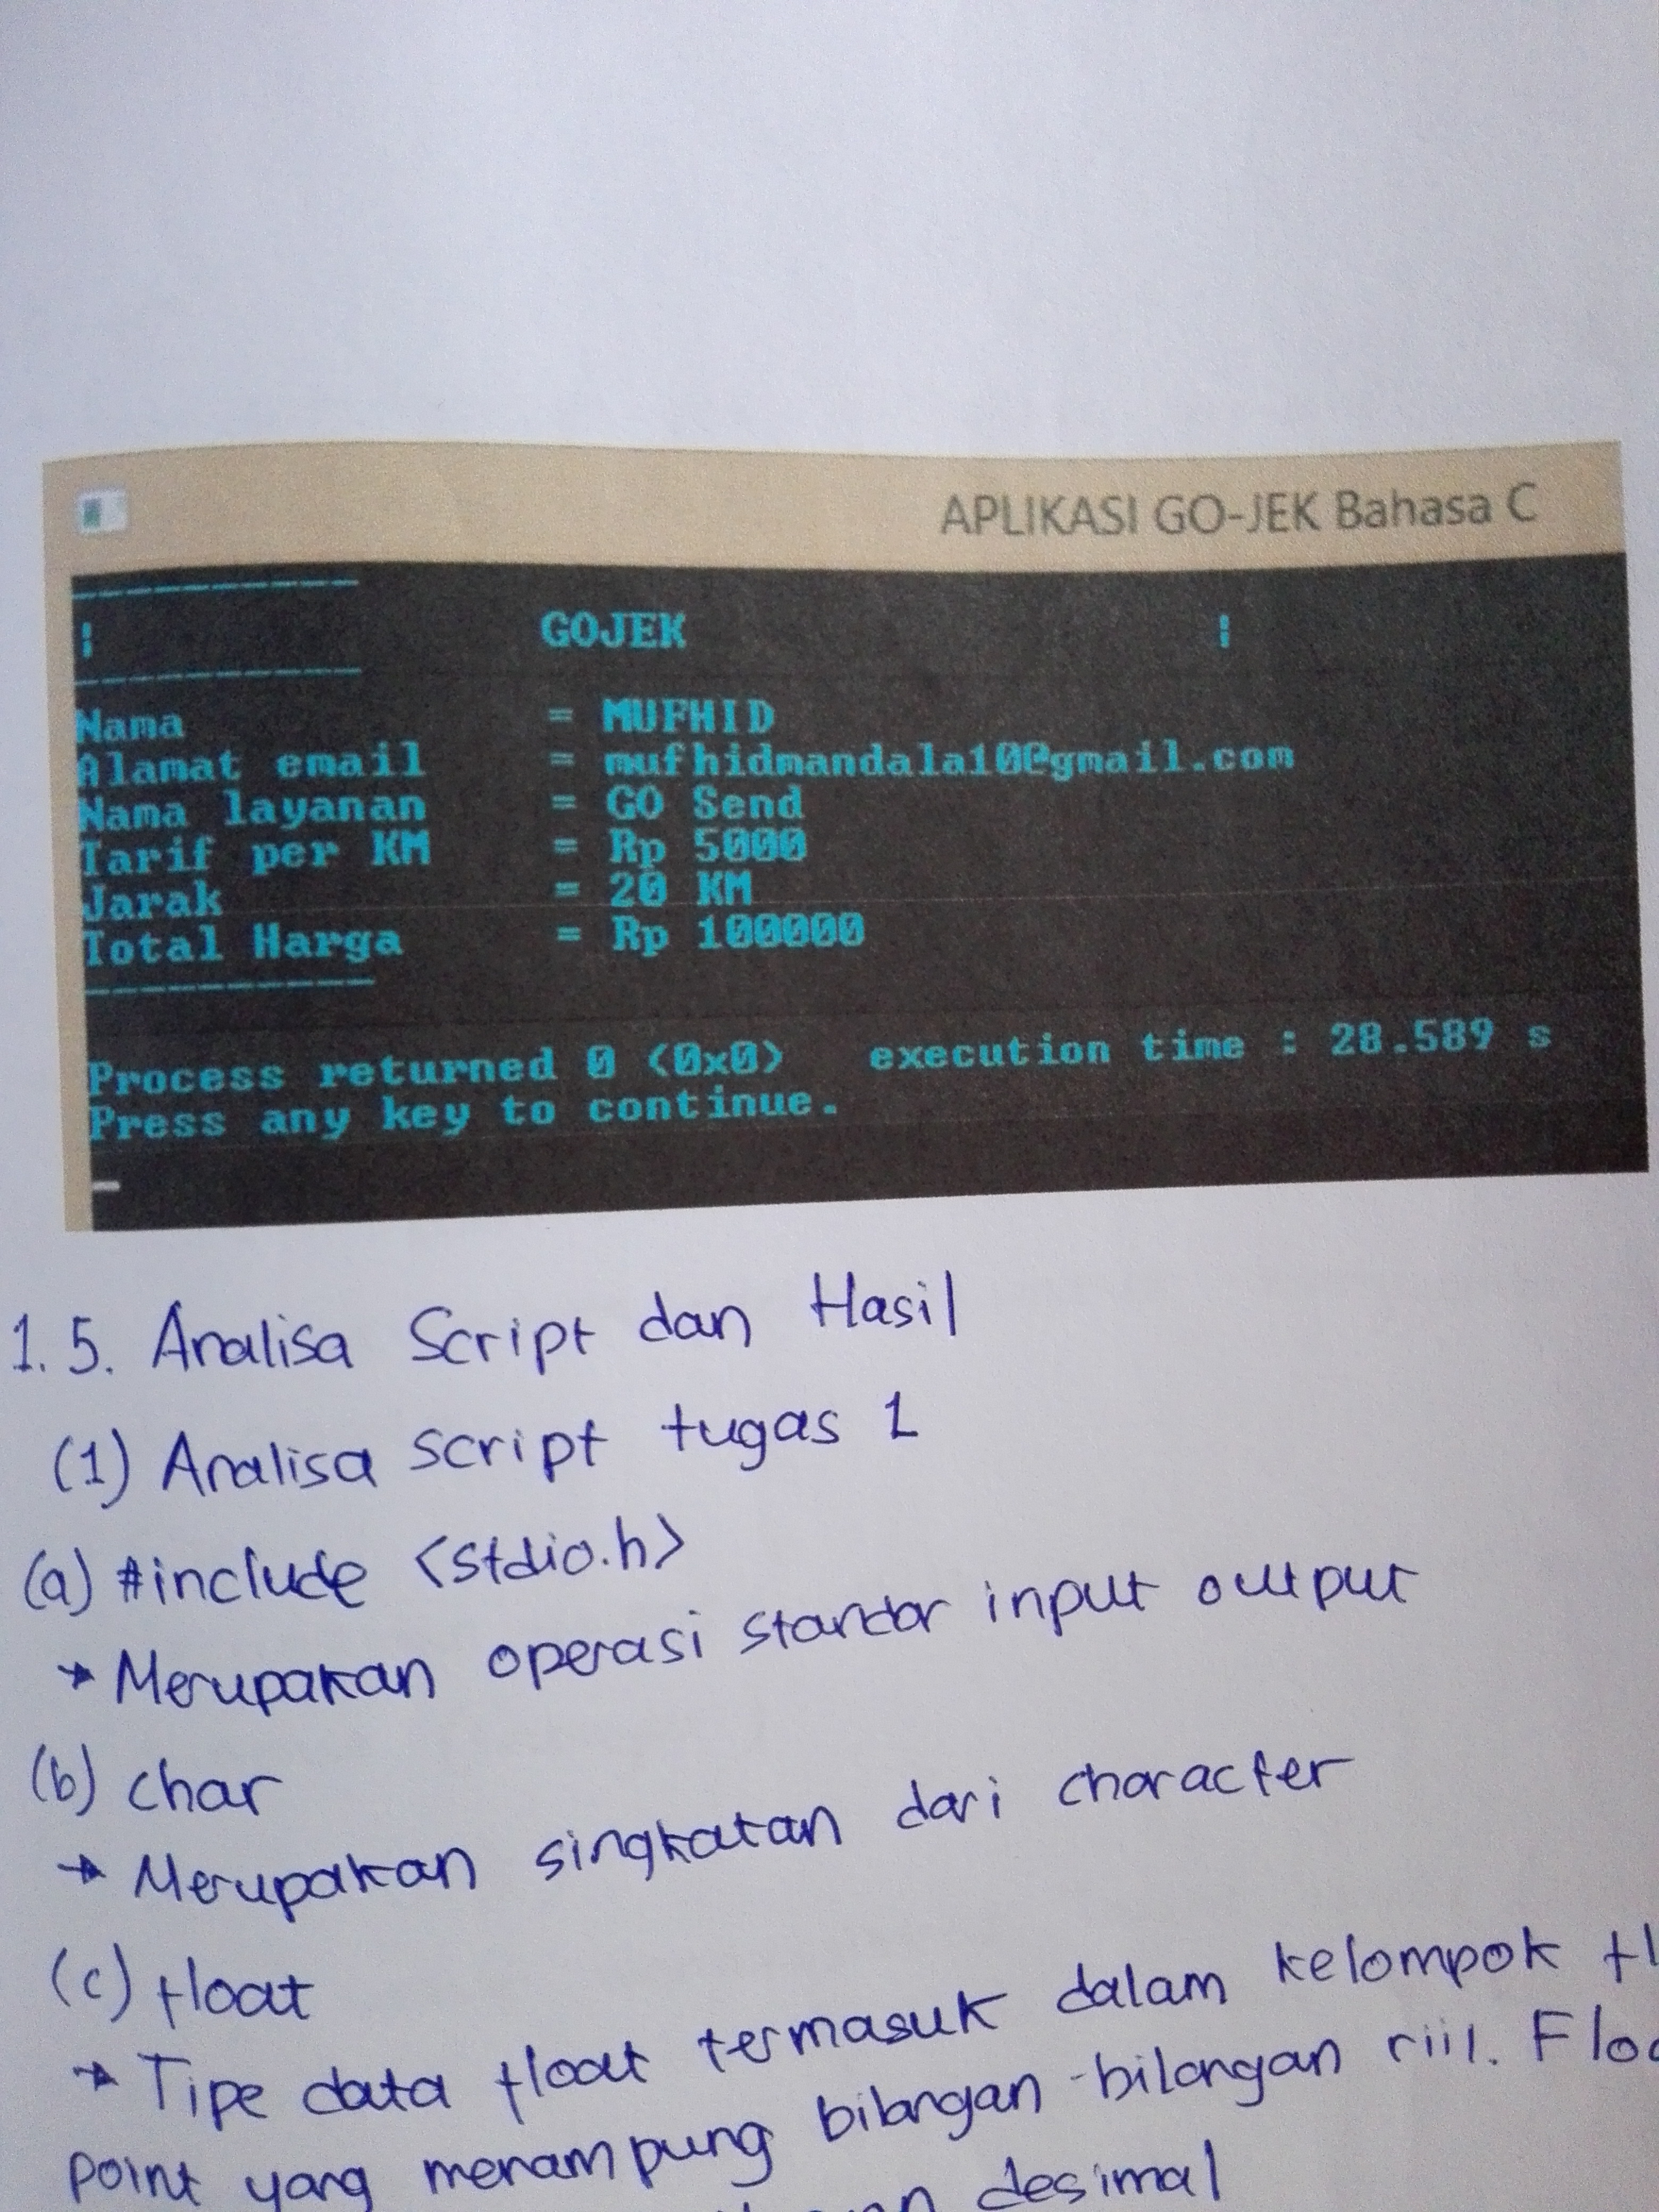 APLIKASI GO-JEK Bahasa C
----------
| GOJEK |
----------
Nama = MUFHID
Alamat email = mufhidmandala10@gmail.com
Nama layanan = GO Send
Tarif per KM = Rp 5000
Jarak = 20 KM
Total Harga = Rp 100000
----------
Process returned 0 (0x0) execution time : 28.589 s
Press any key to continue.
1.5. Analisa Script dan Hasil
(1) Analisa script tugas 1
(a) #include <stdio.h>
→ Merupakan operasi standar input output
(b) char
→ Merupakan singkatan dari character
(c) float
→ Tipe data float termasuk dalam kelompok
point yang menampung bilangan-bilangan riil.
desimal